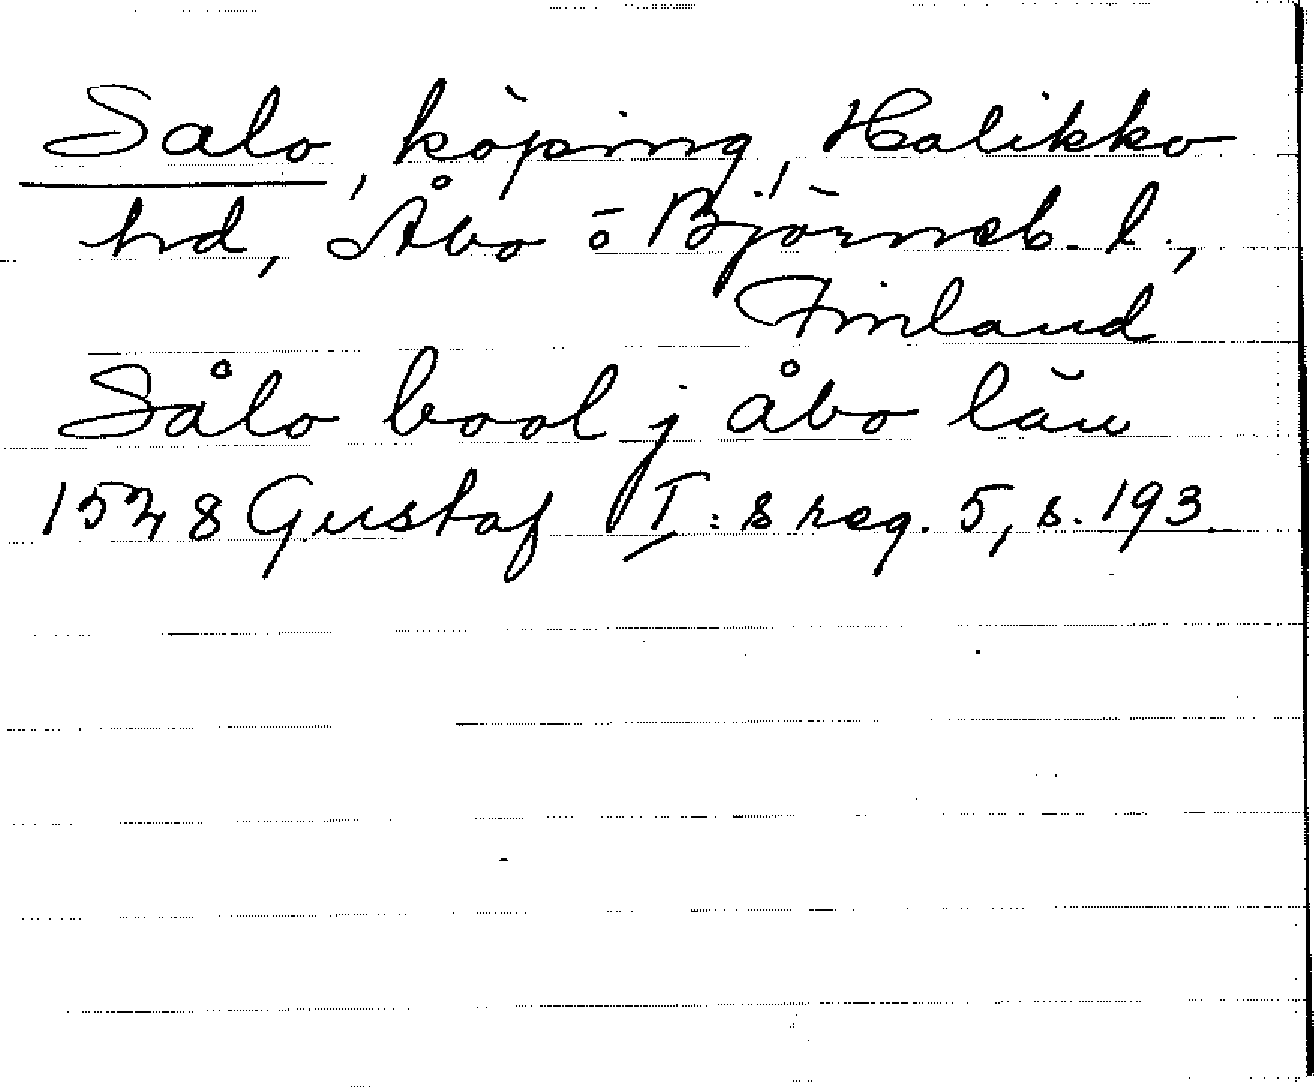 Salo, köping, Halikko
hd, Åbo o Björneb. l.,
Finland
Sålo bool j åbo län
1528 Gustaf I:s reg. 5, s. 193.